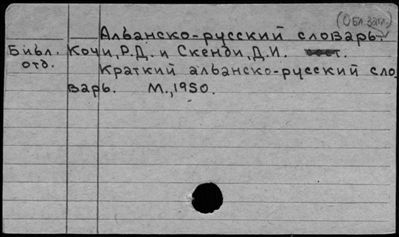 (Обл. загл.)
Албанско-русский словарь.
Библ. Кочи, Р.Д. и Скенди, Д.И.
отд. Краткий албанско-русский сло-
варь. М., 1950.